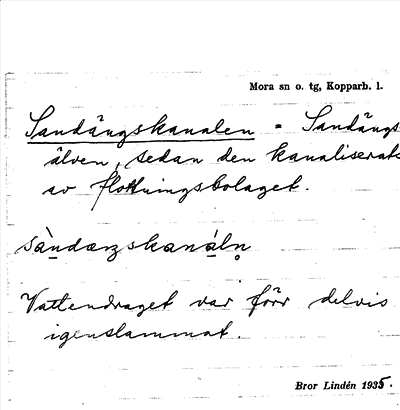 Mora sn o. tg, Kopparb. l.
Sandängskanalen = Sandängs
älven, sedan den kanaliserats
av flottningsbolaget.
Vattendraget var förr delvis
igenslammat.
Bror Lindén 1935.